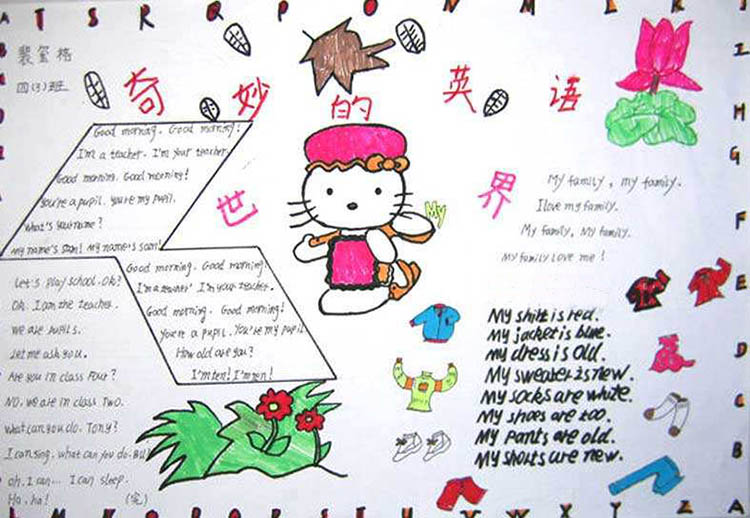 T S R Q P O N M L K J
裴玺格
四(3)班
奇妙的英语
世界
Good morning. Good morning!
I'm a teacher. I'm your teacher.
Good morning. Good morning!
You're a pupil. you're my pupil.
What's your name?
My name's Sam! My name's Sam!
Good morning. Good morning
I'm a teacher. I'm your teacher.
Good morning. Good morning!
You're a pupil. You're my pupil
How old are you?
I'm ten! I'm ten!
Let's play school. Ok?
Ok. I am the teacher.
We are pupils.
Let me ask you.
Are you in class Four?
No, we are in class Two.
What can you do. Tony?
I can sing. what can you do. Bill
oh. I can... I can sleep.
Ha, ha!
(完)
My
My family, my family.
I love my family.
My family, My family.
My family love me!
My shirt is red.
My jacket is blue.
My dress is old.
My sweater is new.
My socks are white.
My shoes are too.
My pants are old.
My shorts are new.
I
H
G
F
E
D
C
B
A